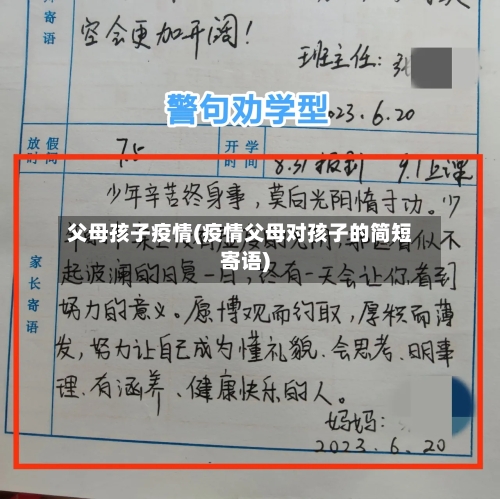 寄语
空会更加开阔！
班主任：张
警句劝学型
2023.6.20
放假时间
7.5
开学时间
8.31报到 9.1上课
少年辛苦终身事，莫向光阴惰寸功。少
父母孩子疫情(疫情父母对孩子的简短
寄语)
似不
起波澜的日复一日，终有一天会让你看到
努力的意义。愿博观而约取，厚积而薄
发，努力让自己成为懂礼貌、会思考、明事
理、有涵养、健康快乐的人。
家长寄语
妈妈：
2023.6.20